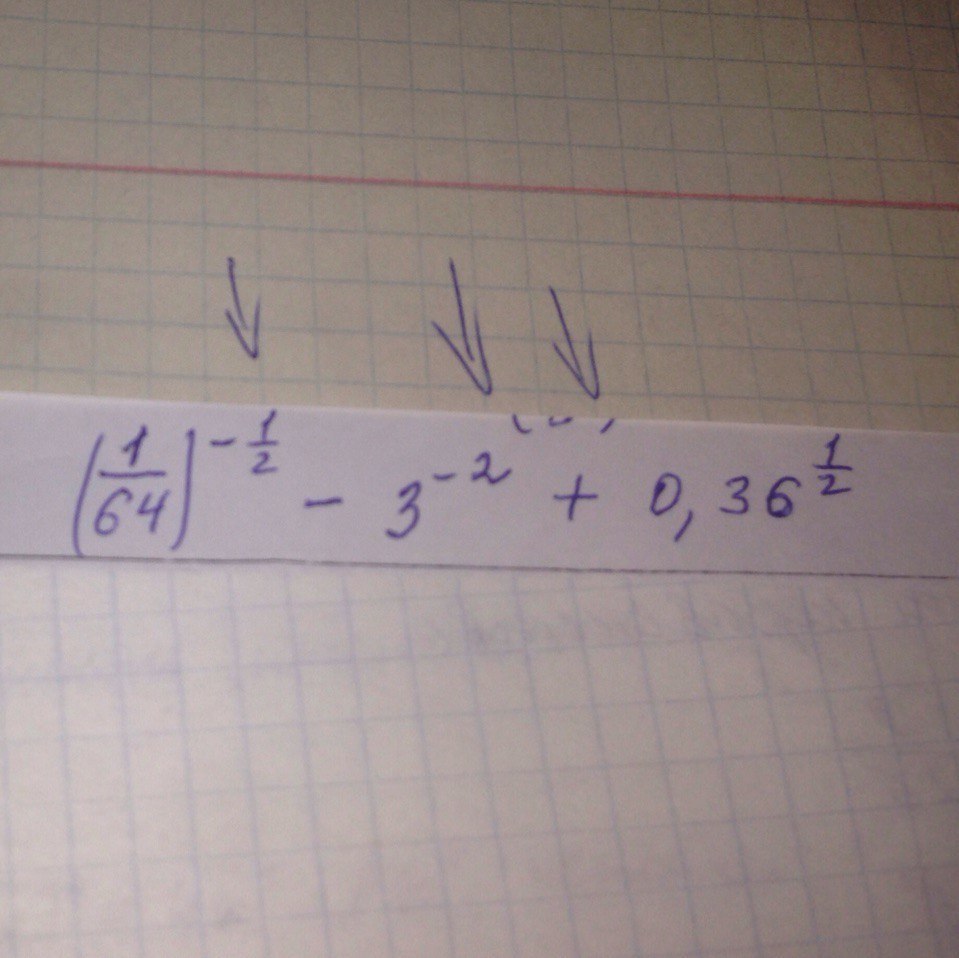 (1/64)^(-1/2) - 3^(-2) + 0,36^(1/2)